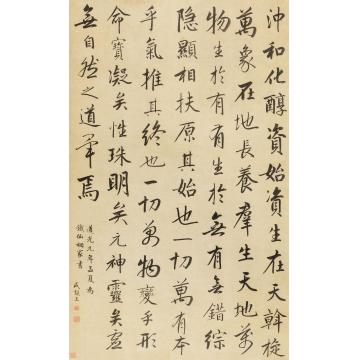 沖和化醇資始資生在天斡旋
萬象在地長養羣生天地萬
物生於有有生於無有無錯綜
隱顯相扶原其始也一切萬有本
乎氣推其終也一切万物變乎形
命寶凝矣性珠明矣元神靈矣虛
無自然之道畢焉
道光元年孟夏為
鐵仙親家書
成親王